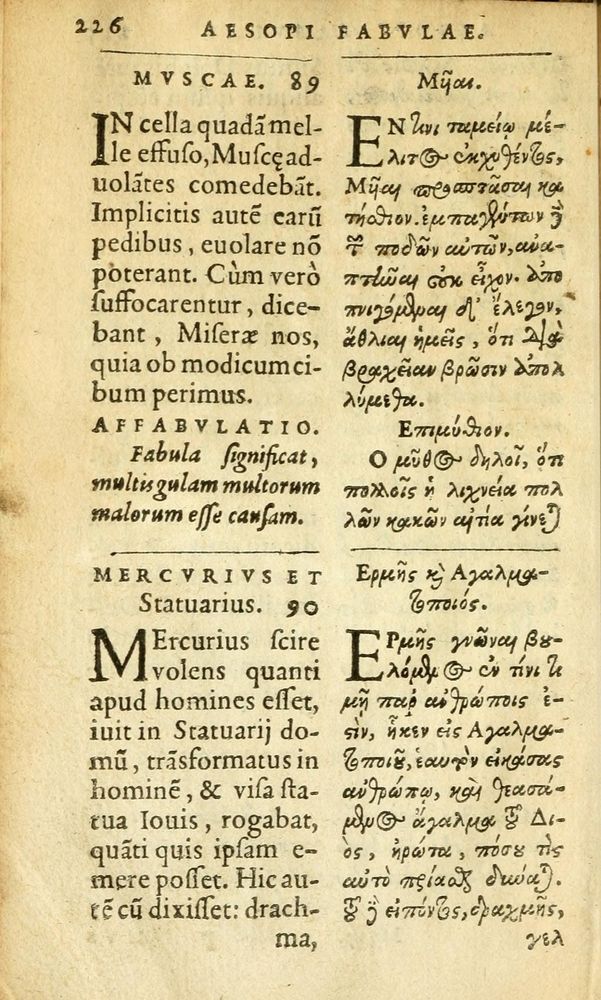 226 AESOPI FABVLAE.
MVSCAE. 89
IN cella quadã mel-
le effuso, Muscę ad-
uolãtes comedebãt.
Implicitis autẽ earũ
pedibus, euolare nõ
poterant. Cùm verò
suffocarentur, dice-
bant, Miseræ nos,
quia ob modicum ci-
bum perimus.
AFFABVLATIO.
Fabula significat,
multis gulam multorum
malorum esse causam.
MERCVRIVS ET
Statuarius. 90
MErcurius scire
volens quanti
apud homines esset,
iuit in Statuarij do-
mũ, trãsformatus in
hominẽ, & visa sta-
tua Iouis, rogabat,
quãti quis ipsam e-
mere posset. Hic au-
tẽ cũ dixisset: drach-
ma,
Μῆαι.
ΕΝ τινι ταμείῳ μέ-
λιτος ἐκχυθέντος,
Μῆαι προσπτᾶσαι κα
τήσθιον. ἐμπαγέντων δὲ
τῶν ποδῶν αὐτῶν, ἀνα-
πτῆναι οὐκ εἶχον. ἀπο
πνιγόμεναι δ' ἔλεγον,
ἄθλιαι ἡμεῖς, ὅτι διὰ
βραχεῖαν βρῶσιν ἀπολ
λύμεθα.
Ἐπιμύθιον.
Ὁ μῦθος δηλοῖ, ὅτι
πολλοῖς ἡ λιχνεία πολ
λῶν κακῶν αἰτία γίνεται
Ἑρμῆς καὶ Ἀγαλμα-
τοποιός.
ΕΡμῆς γνῶναι βου-
λόμενος ἐν τίνι τι
μῇ παρ' ἀνθρώποις ἐ-
σὶν, ἧκεν εἰς Ἀγαλμα-
τοποιοῦ, ἑαυτὸν εἰκάσας
ἀνθρώπῳ, καὶ θεασά-
μενος ἄγαλμα τοῦ Δι-
ὸς, ἠρώτα, πόσου τὶς
αὐτὸ πρίασθαι δύναται.
τοῦ δὲ εἰπόντος, δραχμῆς,
γελ